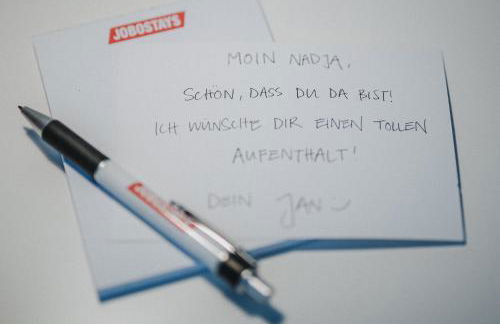 JOBOSTAYS
MOIN NADJA,
SCHÖN, DASS DU DA BIST!
ICH WÜNSCHE DIR EINEN TOLLEN
AUFENTHALT!
DEIN JAN